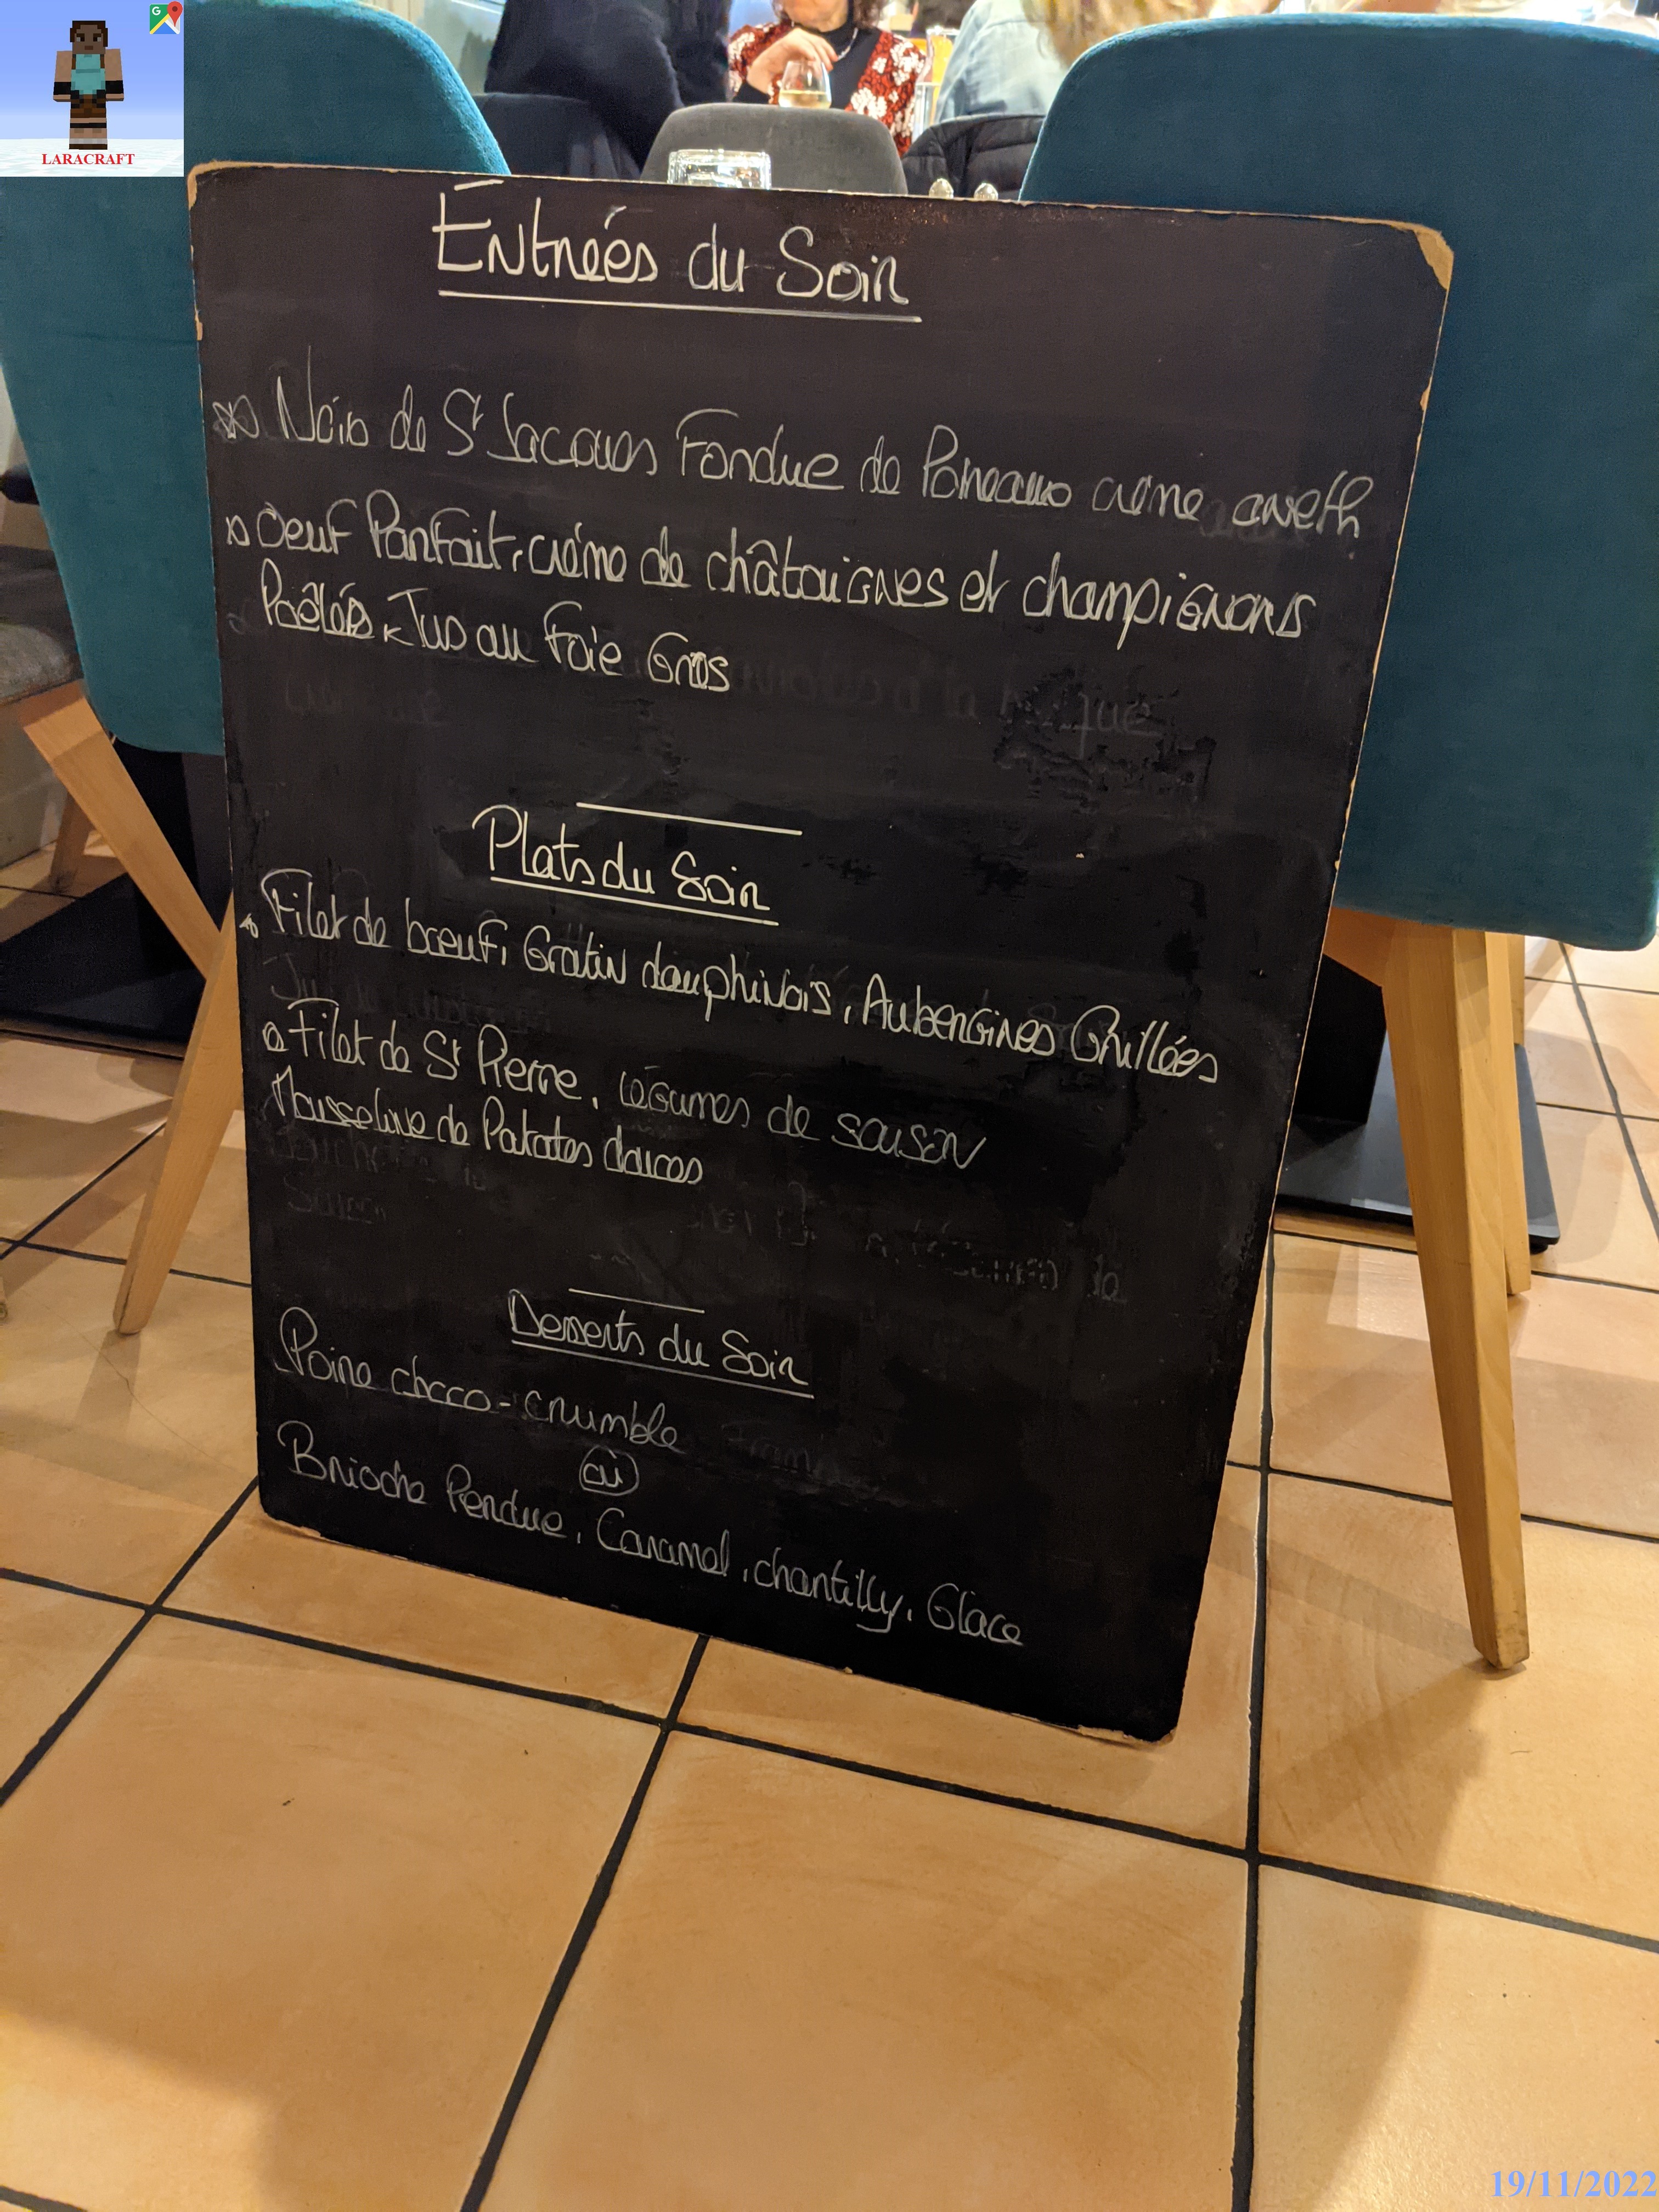 LARACRAFT
Entrées du Soir
Noix de St Jacques Fondue de Poireaux crème aneth
Oeuf Parfait, crème de châtaignes et champignons
Poêlés, Jus au Foie Gras
Plats du Soir
Filet de boeuf, Gratin dauphinois, Aubergines Grillées
Filet de St Pierre, Légumes de saison
Mousseline de Patates douces
Desserts du Soir
Poire choco-crumble
ou
Brioche Perdue, Caramel, chantilly, Glace
19/11/2022